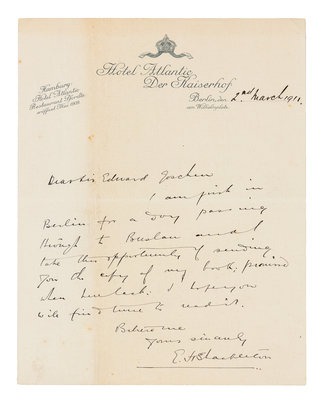 Hotel Atlantic
Der Kaiserhof
Hamburg:
Hotel Atlantic
Restaurant Pfordte
eröffnet Mai 1909.
Berlin, den 2nd March 1911.
am Wilhelmplatz.
Dear Sir Edward Goschen
I am just in
Berlin for a day passing
through to Breslau and I
take this opportunity of sending
you the copy of my book, promised
when here last; I hope you
will find time to read it.
Believe me
Yours sincerely
E. H. Shackleton